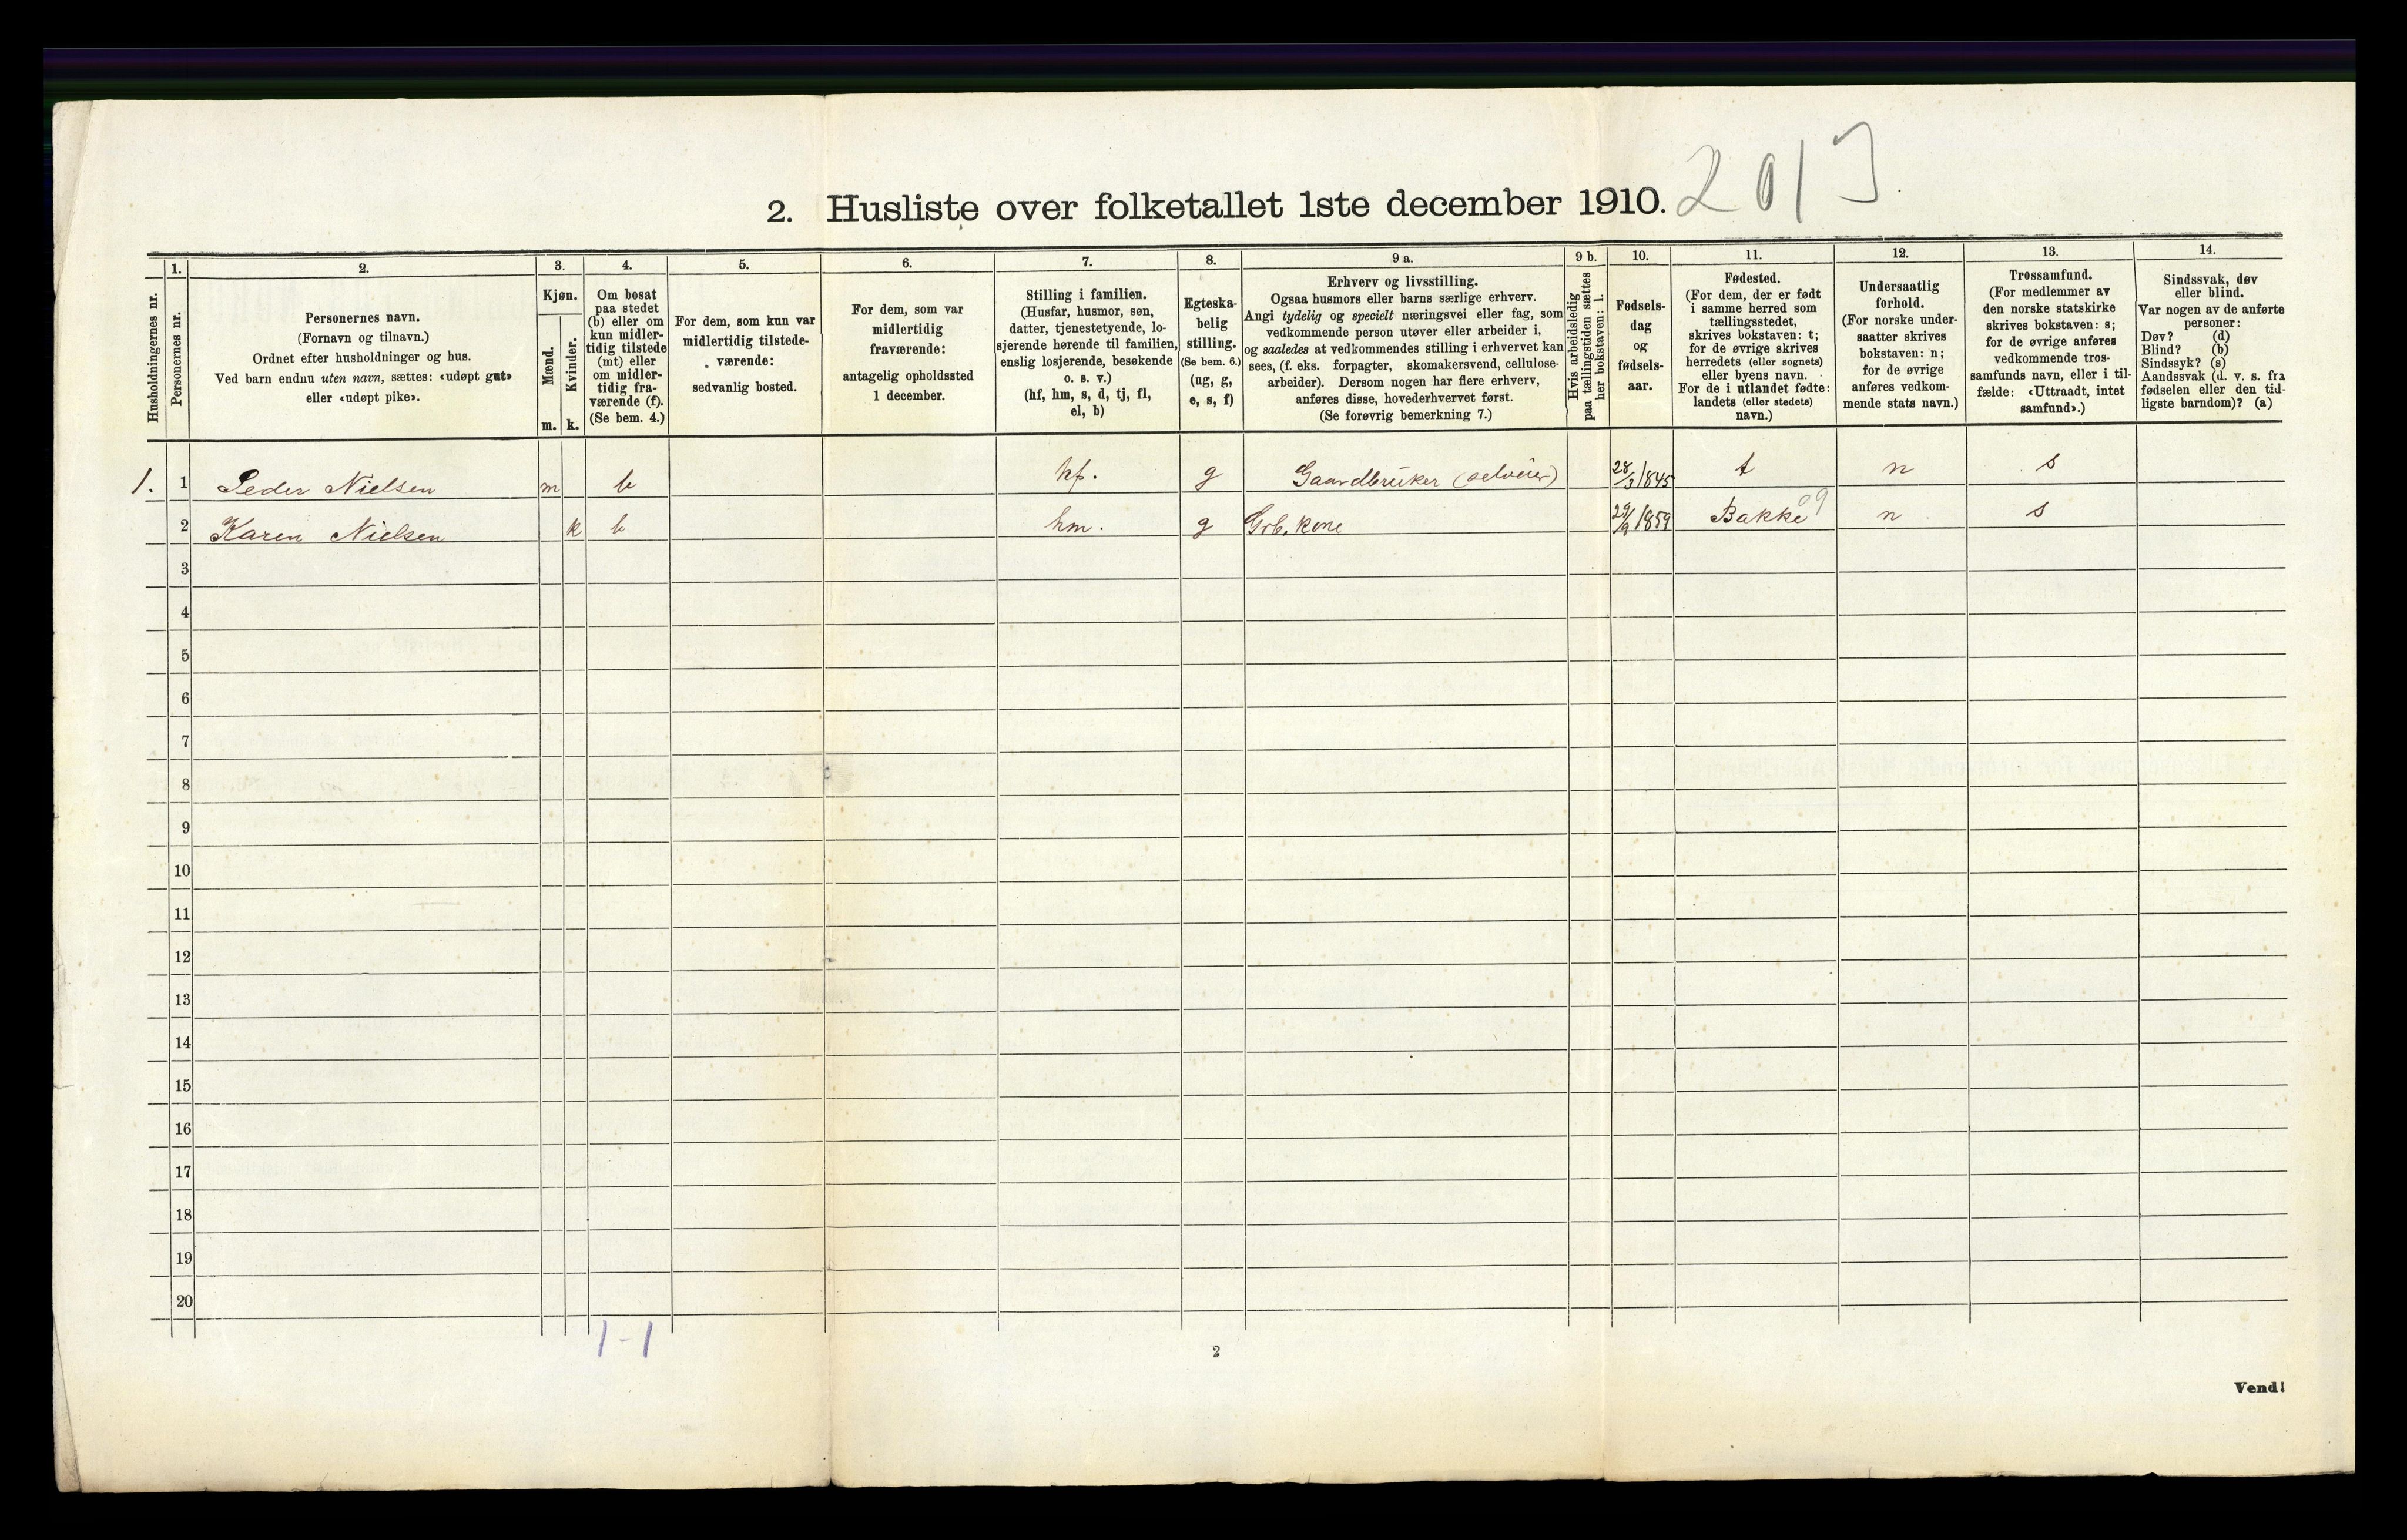 2. Husliste over folketallet 1ste december 1910.
Husholdningernes nr.
1.
Personernes nr.
2.
Personernes navn.
(Fornavn og tilnavn.)
Ordnet efter husholdninger og hus.
Ved barn endnu uten navn, sættes: «udøpt gut»
eller «udøpt pike».
3.
Kjøn.
Mænd.
Kvinder.
m. k.
4.
Om bosat
paa stedet
(b) eller om
kun midler-
tidig tilstede
(mt) eller
om midler-
tidig fra-
værende (f).
(Se bem. 4.)
5.
For dem, som kun var
midlertidig tilstede-
værende:
sedvanlig bosted.
6.
For dem, som var
midlertidig
fraværende:
antagelig opholdssted
1 december.
7.
Stilling i familien.
(Husfar, husmor, søn,
datter, tjenestetyende, lo-
sjerende hørende til familien,
enslig losjerende, besøkende
o. s. v.)
(hf, hm, s, d, tj, fl,
el, b)
8.
Egteska-
belig
stilling.
(Se bem. 6.)
(ug, g,
e, s, f)
9 a.
Erhverv og livsstilling.
Ogsaa husmors eller barns særlige erhverv.
Angi tydelig og specielt næringsvei eller fag, som
vedkommende person utøver eller arbeider i,
og saaledes at vedkommendes stilling i erhvervet kan
sees, (f. eks. forpagter, skomakersvend, cellulose-
arbeider). Dersom nogen har flere erhverv,
anføres disse, hovederhvervet først.
(Se forøvrig bemerkning 7.)
9 b.
Hvis arbeidsledig
paa tællingstiden sættes
her bokstaven: l.
10.
Fødsels-
dag
og
fødsels-
aar.
11.
Fødested.
(For dem, der er født
i samme herred som
tællingsstedet,
skrives bokstaven: t;
for de øvrige skrives
herredets (eller sognets)
eller byens navn.
For de i utlandet fødte:
landets (eller stedets)
navn.)
12.
Undersaatlig
forhold.
(For norske under-
saatter skrives
bokstaven: n;
for de øvrige
anføres vedkom-
mende stats navn.)
13.
Trossamfund.
(For medlemmer av
den norske statskirke
skrives bokstaven: s;
for de øvrige anføres
vedkommende tros-
samfunds navn, eller i til-
fælde: «Uttraadt, intet
samfund».)
14.
Sindssvak, døv
eller blind.
Var nogen av de anførte
personer:
Døv? (d)
Blind? (b)
Sindssyk? (s)
Aandssvak (d. v. s. fra
fødselen eller den tid-
ligste barndom)? (a)
1. 1 Peder Nielsen m b hf. g Gaardbruker (selveier) 28/3 1845 t n s
2 Karen Nielsen k b hm. g Grb. kone 29/9 1859 Bakke 09 n s
3
4
5
6
7
8
9
10
11
12
13
14
15
16
17
18
19
20
1-1
2
Vend!